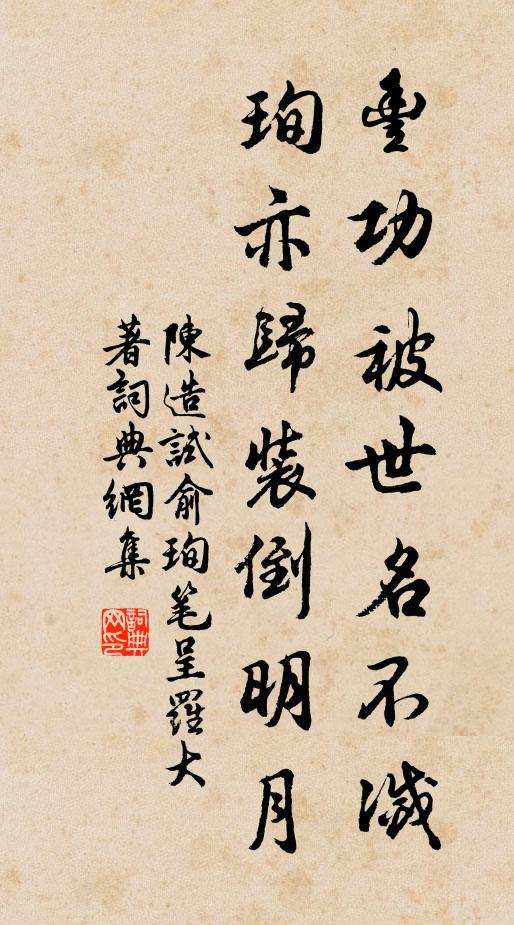 豐功被世名不滅
珣亦歸裝倒明月
陳造試俞珣笔呈羅大
著詞典網集
詞典網印